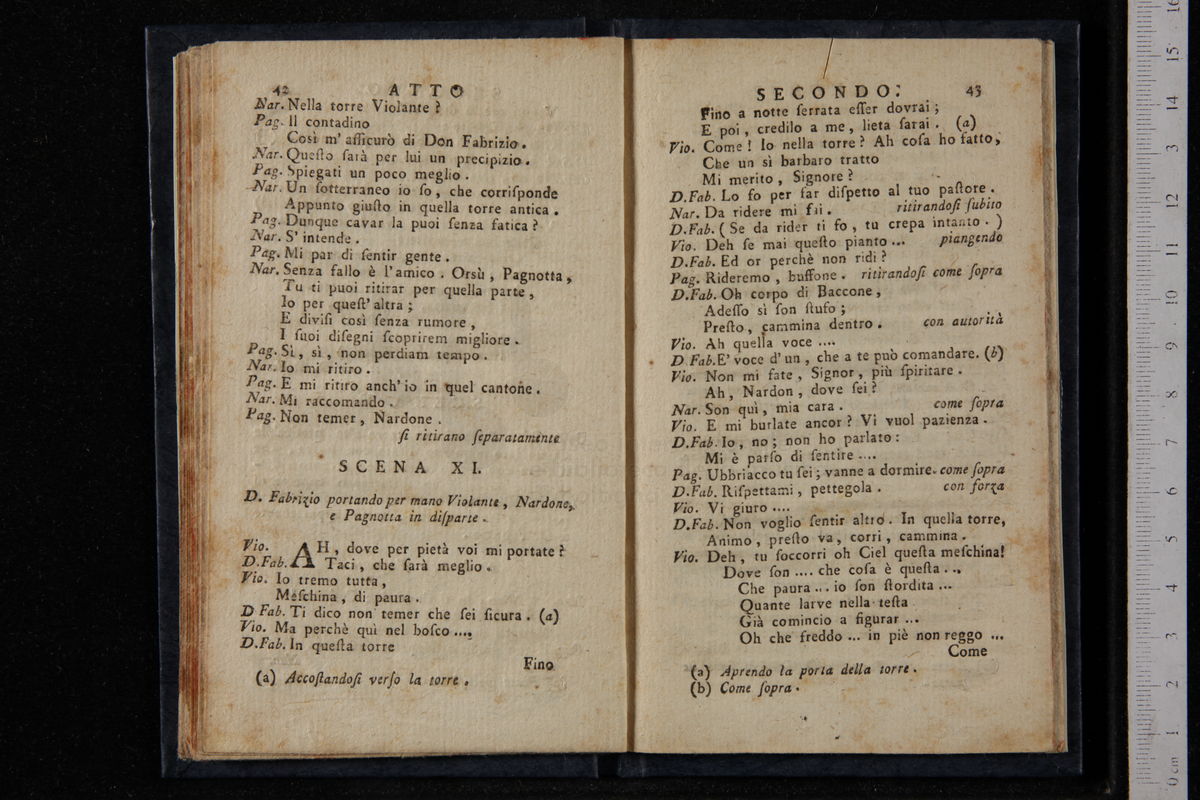 42 ATTO
Nar. Nella torre Violante ?
Pag. Il contadino
Così m' aſſicurò di Don Fabrizio.
Nar. Queſto ſarà per lui un precipizio.
Pag. Spiegati un poco meglio .
Nar. Un ſotterraneo io ſo, che corriſponde
Appunto giuſto in quella torre antica .
Pag. Dunque cavar la puoi ſenza fatica ?
Nar. S' intende .
Pag. Mi par di ſentir gente .
Nar. Senza fallo è l'amico . Orsù , Pagnotta,
Tu ti puoi ritirar per quella parte ,
Io per queſt' altra ;
E diviſi così ſenza rumore ,
I ſuoi diſegni ſcoprirem migliore .
Pag. Sì , sì , non perdiam tempo .
Nar. Io mi ritiro .
Pag. E mi ritiro anch' io in quel cantone .
Nar. Mi raccomando .
Pag. Non temer, Nardone .
ſi ritirano ſeparatamente
SCENA XI.
D. Fabrizio portando per mano Violante, Nardone,
e Pagnotta in diſparte .
Vio. AH, dove per pietà voi mi portate ?
D.Fab. Taci, che ſarà meglio .
Vio. Io tremo tutta,
Meſchina, di paura .
D Fab. Ti dico non temer che ſei ſicura . (a)
Vio. Ma perchè quì nel boſco ....
D.Fab. In queſta torre
Fino
(a) Accoſtandoſi verſo la torre .
SECONDO. 43
Fino a notte ſerrata eſſer dovrai ;
E poi , credilo a me, lieta ſarai . (a)
Vio. Come ! Io nella torre ? Ah coſa ho fatto,
Che un sì barbaro tratto
Mi merito , Signore ?
D.Fab. Lo fo per far diſpetto al tuo paſtore .
Nar. Da ridere mi fai . ritirandoſi ſubito
D.Fab. ( Se da rider ti fo , tu crepa intanto . )
Vio. Deh ſe mai queſto pianto ... piangendo
D.Fab. Ed or perchè non ridi ?
Pag. Rideremo , buffone . ritirandoſi come ſopra
D.Fab. Oh corpo di Baccone ,
Adeſſo sì ſon ſtufo ;
Preſto, cammina dentro . con autorità
Vio. Ah quella voce ....
D Fab. E' voce d' un , che a te può comandare. (b)
Vio. Non mi fate , Signor, più ſpiritare .
Ah, Nardon, dove ſei ?
Nar. Son quì , mia cara . come ſopra
Vio. E mi burlate ancor ? Vi vuol pazienza .
D.Fab. Io, no ; non ho parlato :
Mi è parſo di ſentire ....
Pag. Ubbriacco tu ſei ; vanne a dormire. come ſopra
D.Fab. Riſpettami, pettegola . con forza
Vio. Vi giuro ....
D.Fab. Non voglio ſentir altro . In quella torre,
Animo , preſto va, corri, cammina .
Vio. Deh, tu ſoccorri oh Ciel queſta meſchina!
Dove ſon .... che coſa è queſta ...
Che paura ... io ſon ſtordita ...
Quante larve nella teſta
Già comincio a figurar ...
Oh che freddo ... in piè non reggo ...
Come
(a) Aprendo la porta della torre .
(b) Come ſopra .